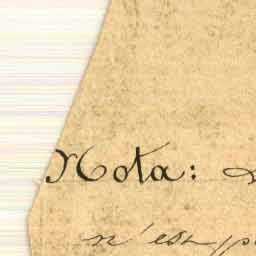 Nota:
n'est